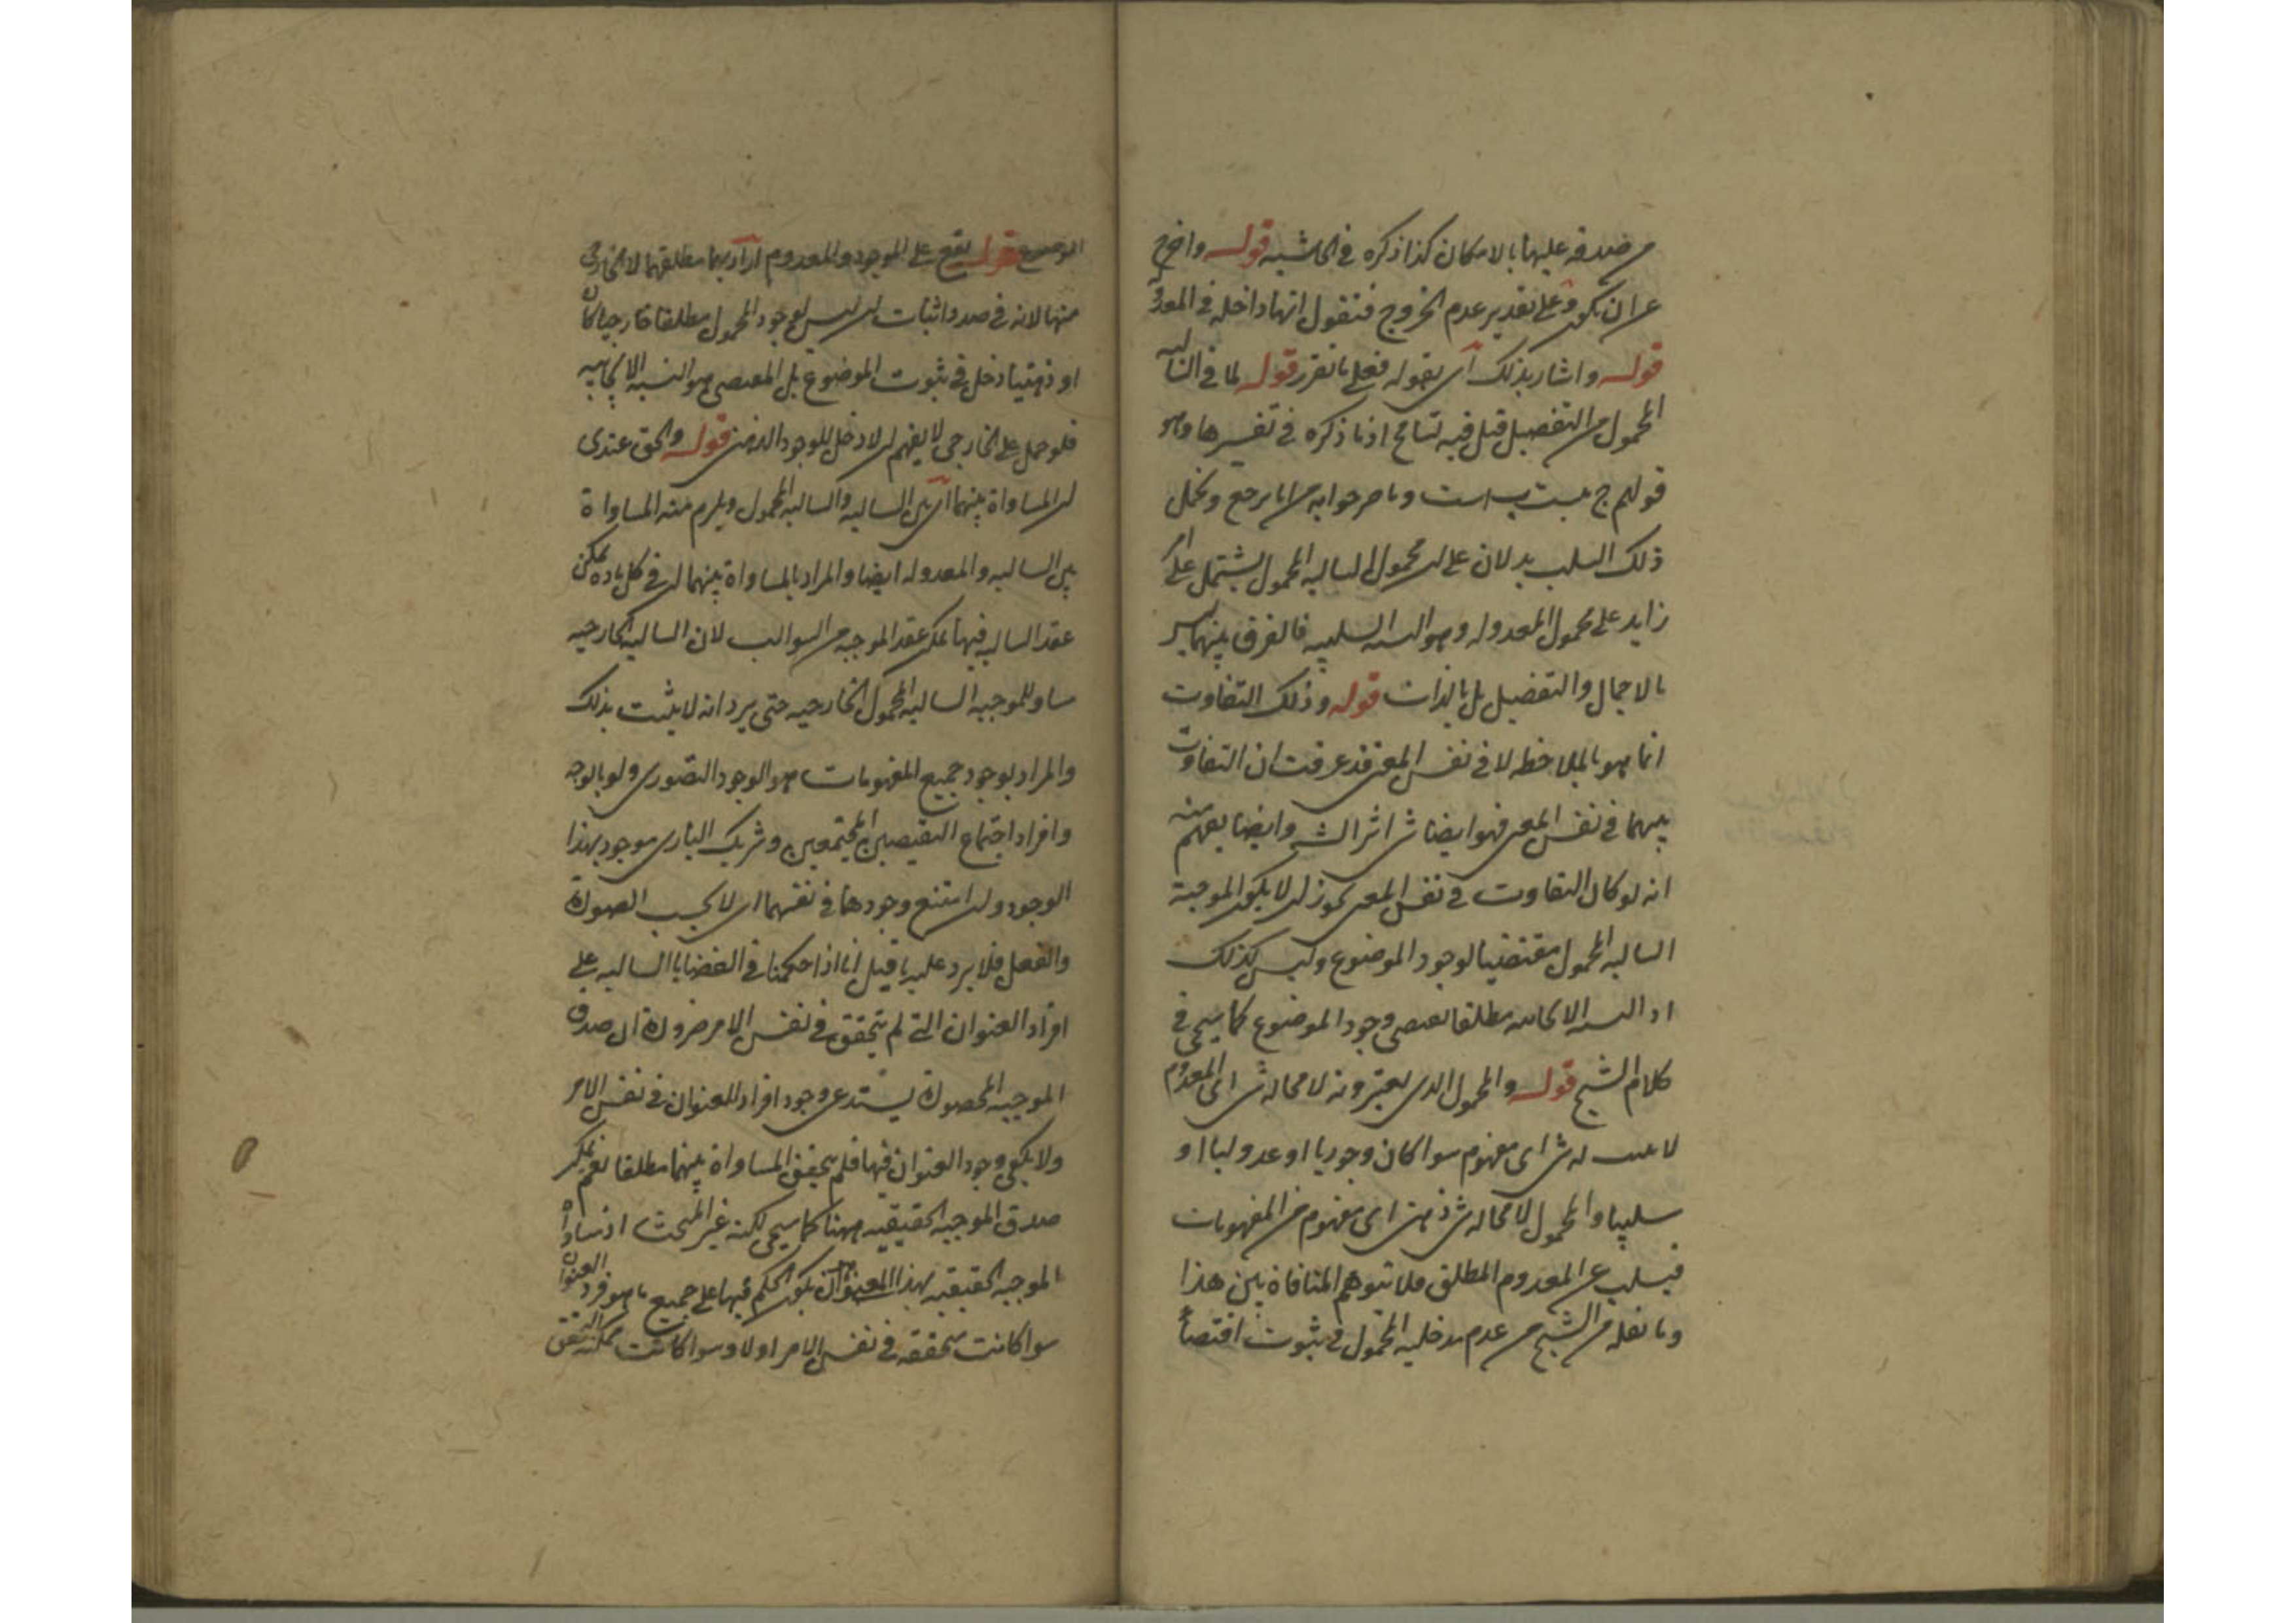 من صدقه عليها بالامكان كذا ذكره في الحاشيه قوله واخرج
عن ان يكون وعلى تقدير عدم الخروج فنقول انها داخله في المعدوله
قوله واشار بذلك اي بقوله فعلى ما تقرر قوله لما في السالبه
المحمول من التفصيل قيل فيه تسامح اذ ما ذكره في تفسيرها وهو
قولهم ج ب است وما مر جوابه من انا نرجع ونحمل
ذلك السلب يدلان على ان محمول السالبه المحمول يشتمل على امر
زايد على محمول المعدوله وهو النسبه السلبيه فالفرق بينهما ليس
بالاجمال والتفصيل بل بالذات قوله وذلك التفاوت
انما هو بالملاحظه لا في نفس المعنى قد عرفت ان التفاوت
بينهما في نفس المعنى فهو ايضا ش اثر الشـ وايضا يفهم منه
انه لو كان التفاوت في نفس المعنى يجوز ان لا يكون الموجبة
السالبه المحمول مقتضيا لوجود الموضوع وليس كذلك
اذ النسبه الايجابيه مطلقا تقتضي وجود الموضوع كما سيجي في
كلام الشيخ قوله والمحمول الذي يعتبرونه لا محاله ش اي المعدوم
لا يثبت له ش اي مفهوم سوا كان وجوديا او عدوليا او
سلبيا والمحمول لا محاله ش ذهني اي مفهوم من المفهومات
فيسلب عن المعدوم المطلق فلا تتوهم المنافاة بين هذا
وما نقله من الشيخ من عدم مدخليه المحمول في ثبوت اقتضا
الموضوع قوله يقع على الموجود والمعدوم اراد بهما مطلقهما لا الخارجي
منهما لانه في صدد اثبات ان ليس لوجود المحمول مطلقا خارجيا كان
او ذهنيا دخل في ثبوت الموضوع بل المقتضي هو النسبه الايجابيه
فلو حمل على الخارجي لا يفهم ان لا دخل للوجود الذهني قوله والحق عندي
ان المساواة بينهما اي بين السالبه والسالبه المحمول ويلزم منه المساواة
بين السالبه والمعدوله ايضا والمراد بالمساواة بينهما ان في كل ماده يمكن
عقد السالبه فيها يمكن عقد الموجبه من السوالب لان السالبه الخارجيه
مساو للموجبه السالبه المحمول الخارجيه حتى يرد انه لا يثبت بذلك
والمراد بوجود جميع المفهومات هو الوجود التصوري ولو بالوجه
وافراد اجتماع النقيضين المجتمعين وشريك الباري موجود بهذا
الوجود وان امتنع وجودهما في نفسهما اي لا بحسب الصورة
والفعل فلا يرد عليه ما قيل انا اذا حكمنا في القضايا السالبه على
افراد العنوان التي لم يتحقق في نفس الامر ضرورة ان صدق
الموجبه المحصورة يستدعي وجود افراد العنوان في نفس الامر
ولا يكفي وجود العنوان فيها فلم يتحقق المساواة بينهما مطلقا نعم يمكن
صدق الموجبه الحقيقيه ههنا كما سيجي لكنه غير المبحث اذ مساواة
الموجبه الحقيقيه بهذا العنوان ان يكون الحكم فيها على جميع ما هو فرد العنوان
سوا كانت متحققه في نفس الامر او لا وسوا كانت ممكنة التحقق